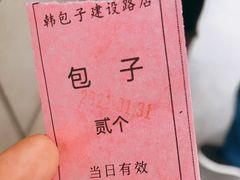 韩包子建设路店
包子
2021.01.31
贰个
当日有效